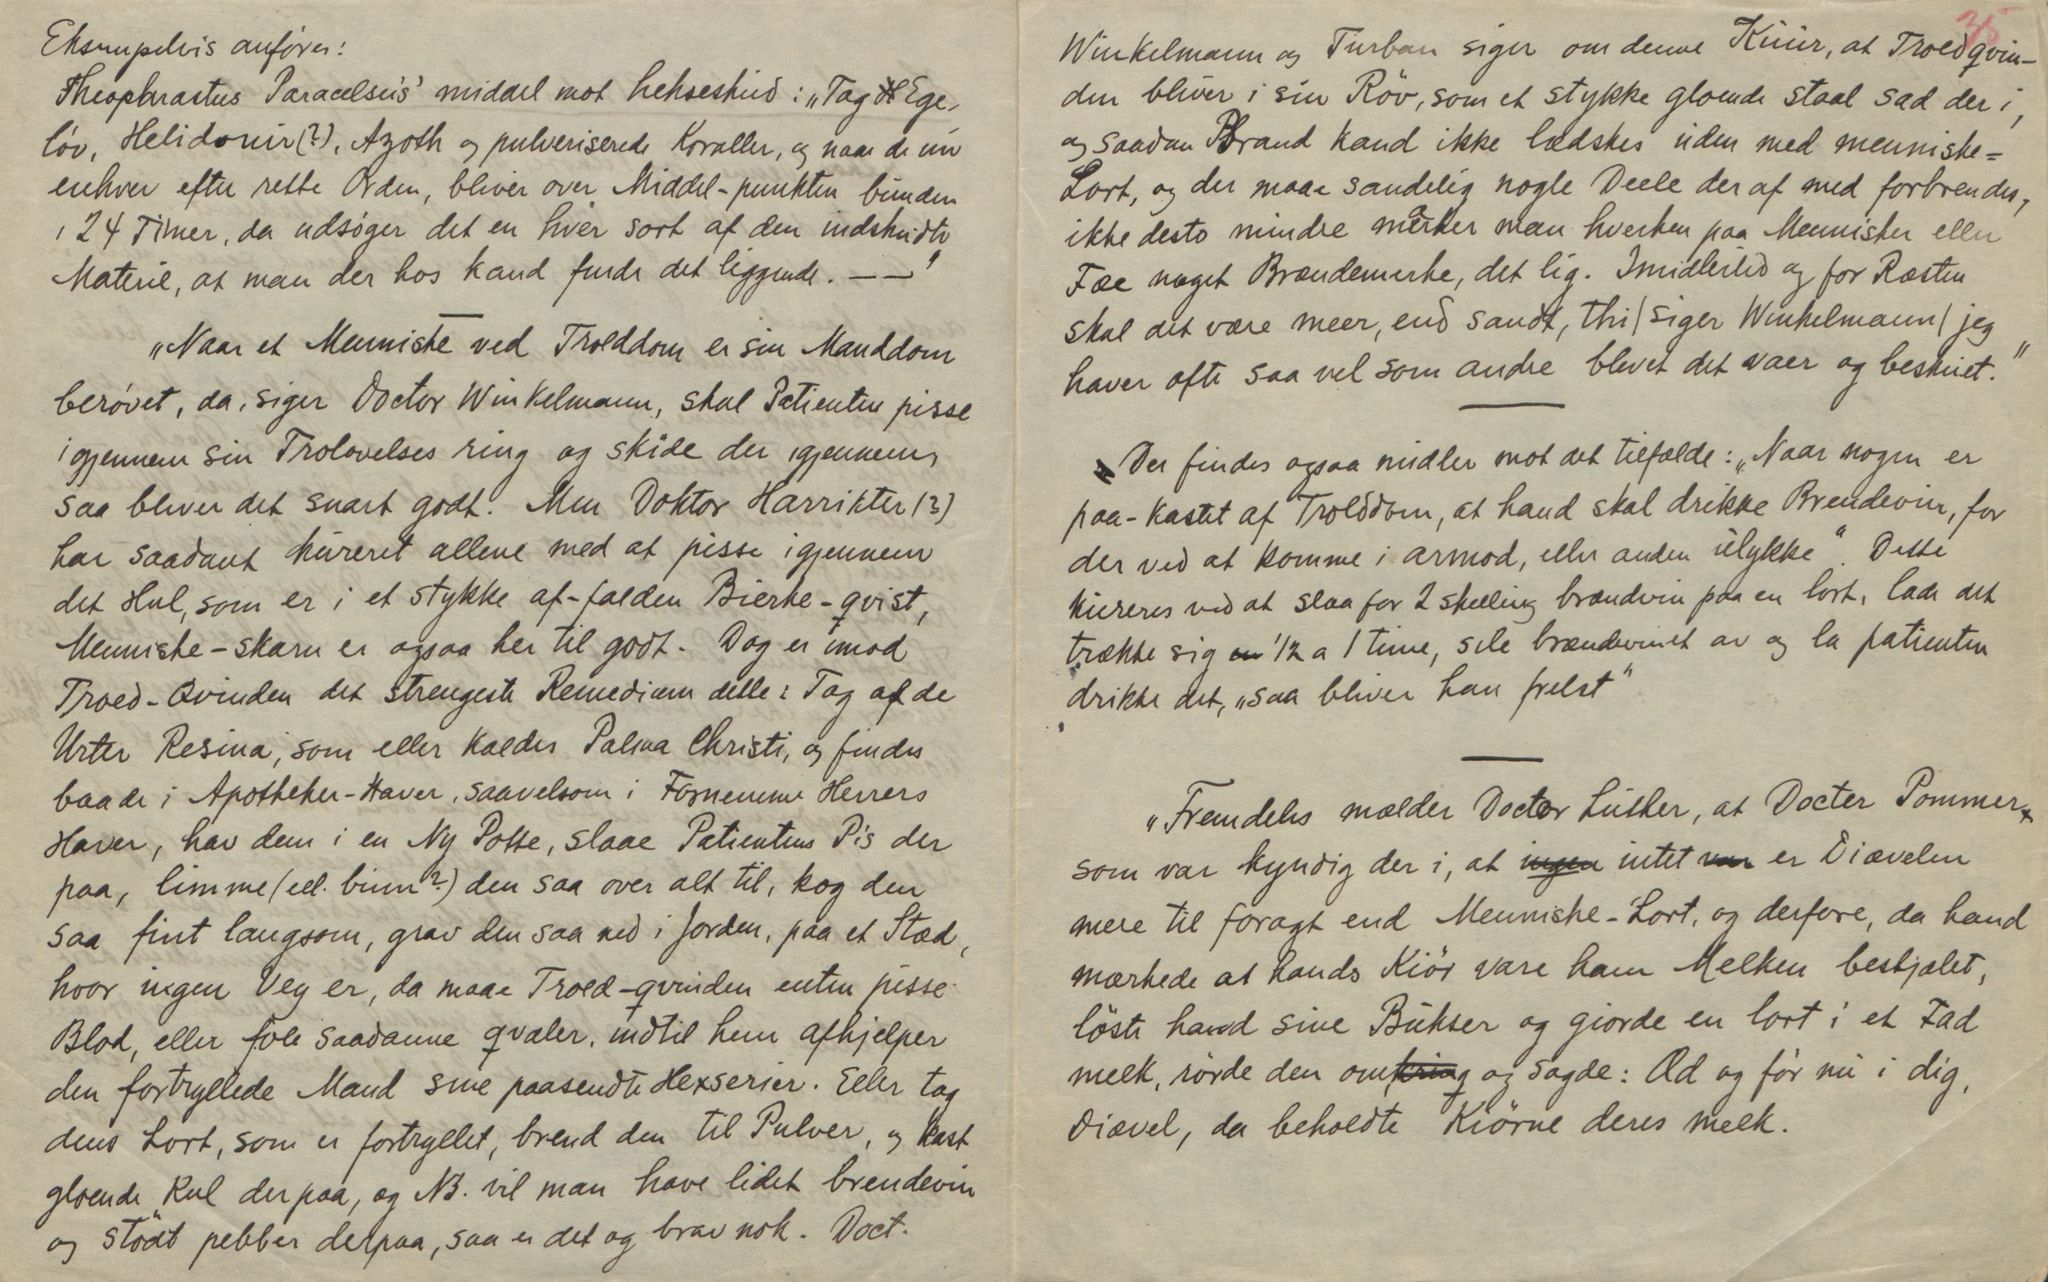 Eksempelvis anføres:
Theophrastus Paracelsus' middel mot hekseskud: „Tag Ege-
løv, Helidonir(?), Azoth og pulveriserede Koraller, og naar de nu
enhver efter rette Orden, bliver over Middel-punkten bunden
i 24 Timer, da udsøger det en hver sort af den indskudte
Materie, at man der hos kand finde det liggende. — —"
„Naar et Menniske ved Trolddom er sin Manddom
berøvet, da, siger Doctor Winkelmann, skal Patienten pisse
igjennem sin Trolovelses ring og skide der igjennem,
saa bliver det snart godt. Men Doktor Harrikter (?)
har saadant kureret allene med at pisse igjennem
det Hul, som er i et stykke af-falden Bierke-qvist,
Menniske-skarn er ogsaa her til godt. Dog er imod
Trold-Qvinden det strengeste Remedium dette: Tag af de
Urter Resina, som eller kaldes Palma Christi, og findes
baade i Apotheker-Haver, saavelsom i Fornemme Herrers
Haver, hav dem i en Ny Potte, slaae Patientens Pis der
paa, limme (ell. binn?) den saa over alt til, kog den
saa fint langsom, grav den saa ned i Jorden, paa et Stæd,
hvor ingen Vey er, da maae Trold-qvinden enten pisse
Blod, eller føle saadanne qvaler, indtil hun afhjelper
den fortryllede Mand sine paasendte Hexserier. Eller tag
dens Lort, som er fortryllet, brend den til Pulver, og kast
gloende Kul derpaa, og NB. vil man have lidet brendevin
og stödt pebber derpaa, saa er det og brav nok. Doct.
35
Winkelmann og Turban siger om denne Kuur, at Troldqvin-
den bliver i sin Röv, som et stykke gloende staal sad der i,
og saadan Brand kand ikke lædskes uden med menniske=
Lort, og der maae sandelig nogle Deele der af med forbrendes,
ikke desto mindre mærker man hverken paa Mennisker eller
Fæe noget Brændemerke, det lig. Imidlertid og for Ræsten
skal det være meer, end sandt, thi/siger Winkelmann/jeg
haver ofte saa vel som andre blevet det vaer og beskuet."
Der findes ogsaa midler mot det tilfælde: „Naar nogen er
paa-kastet af Trolddom, at hand skal drikke Brendevin, for
der ved at komme i armod, eller anden ulykke" Dette
kureres ved at slaa for 2 skelling brændvin paa en lort, lade det
trække sig 1/2 a 1 time, sile brændevinet av og la patienten
drikke det, „saa bliver han frelst"
„Fremdeles mælder Doctor Luther, at Docter Pommer
som var kyndig der i, at intet er Diævelen
mere til foragt end Menniske-Lort, og derfore, da hand
mærkede at hands Kiör vare ham Melken bestjælet,
löste hand sine Bukser og giorde en lort i et Fad
melk, rörde den om og sagde: Æd og för nu i dig,
Diævel, da beholdte Kiörne deres melk.